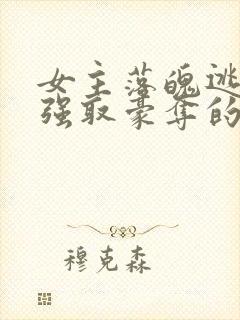 女主落魄逃
强取豪夺的
穆克森